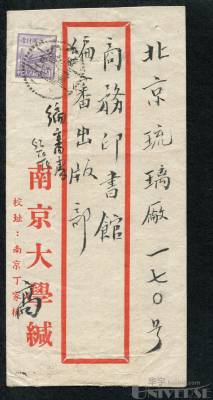 北京琉璃廠一七〇号
商務印書館
編審出版部
南京大學緘
校址：南京丁家橋
高
华宇
UNIVERSE